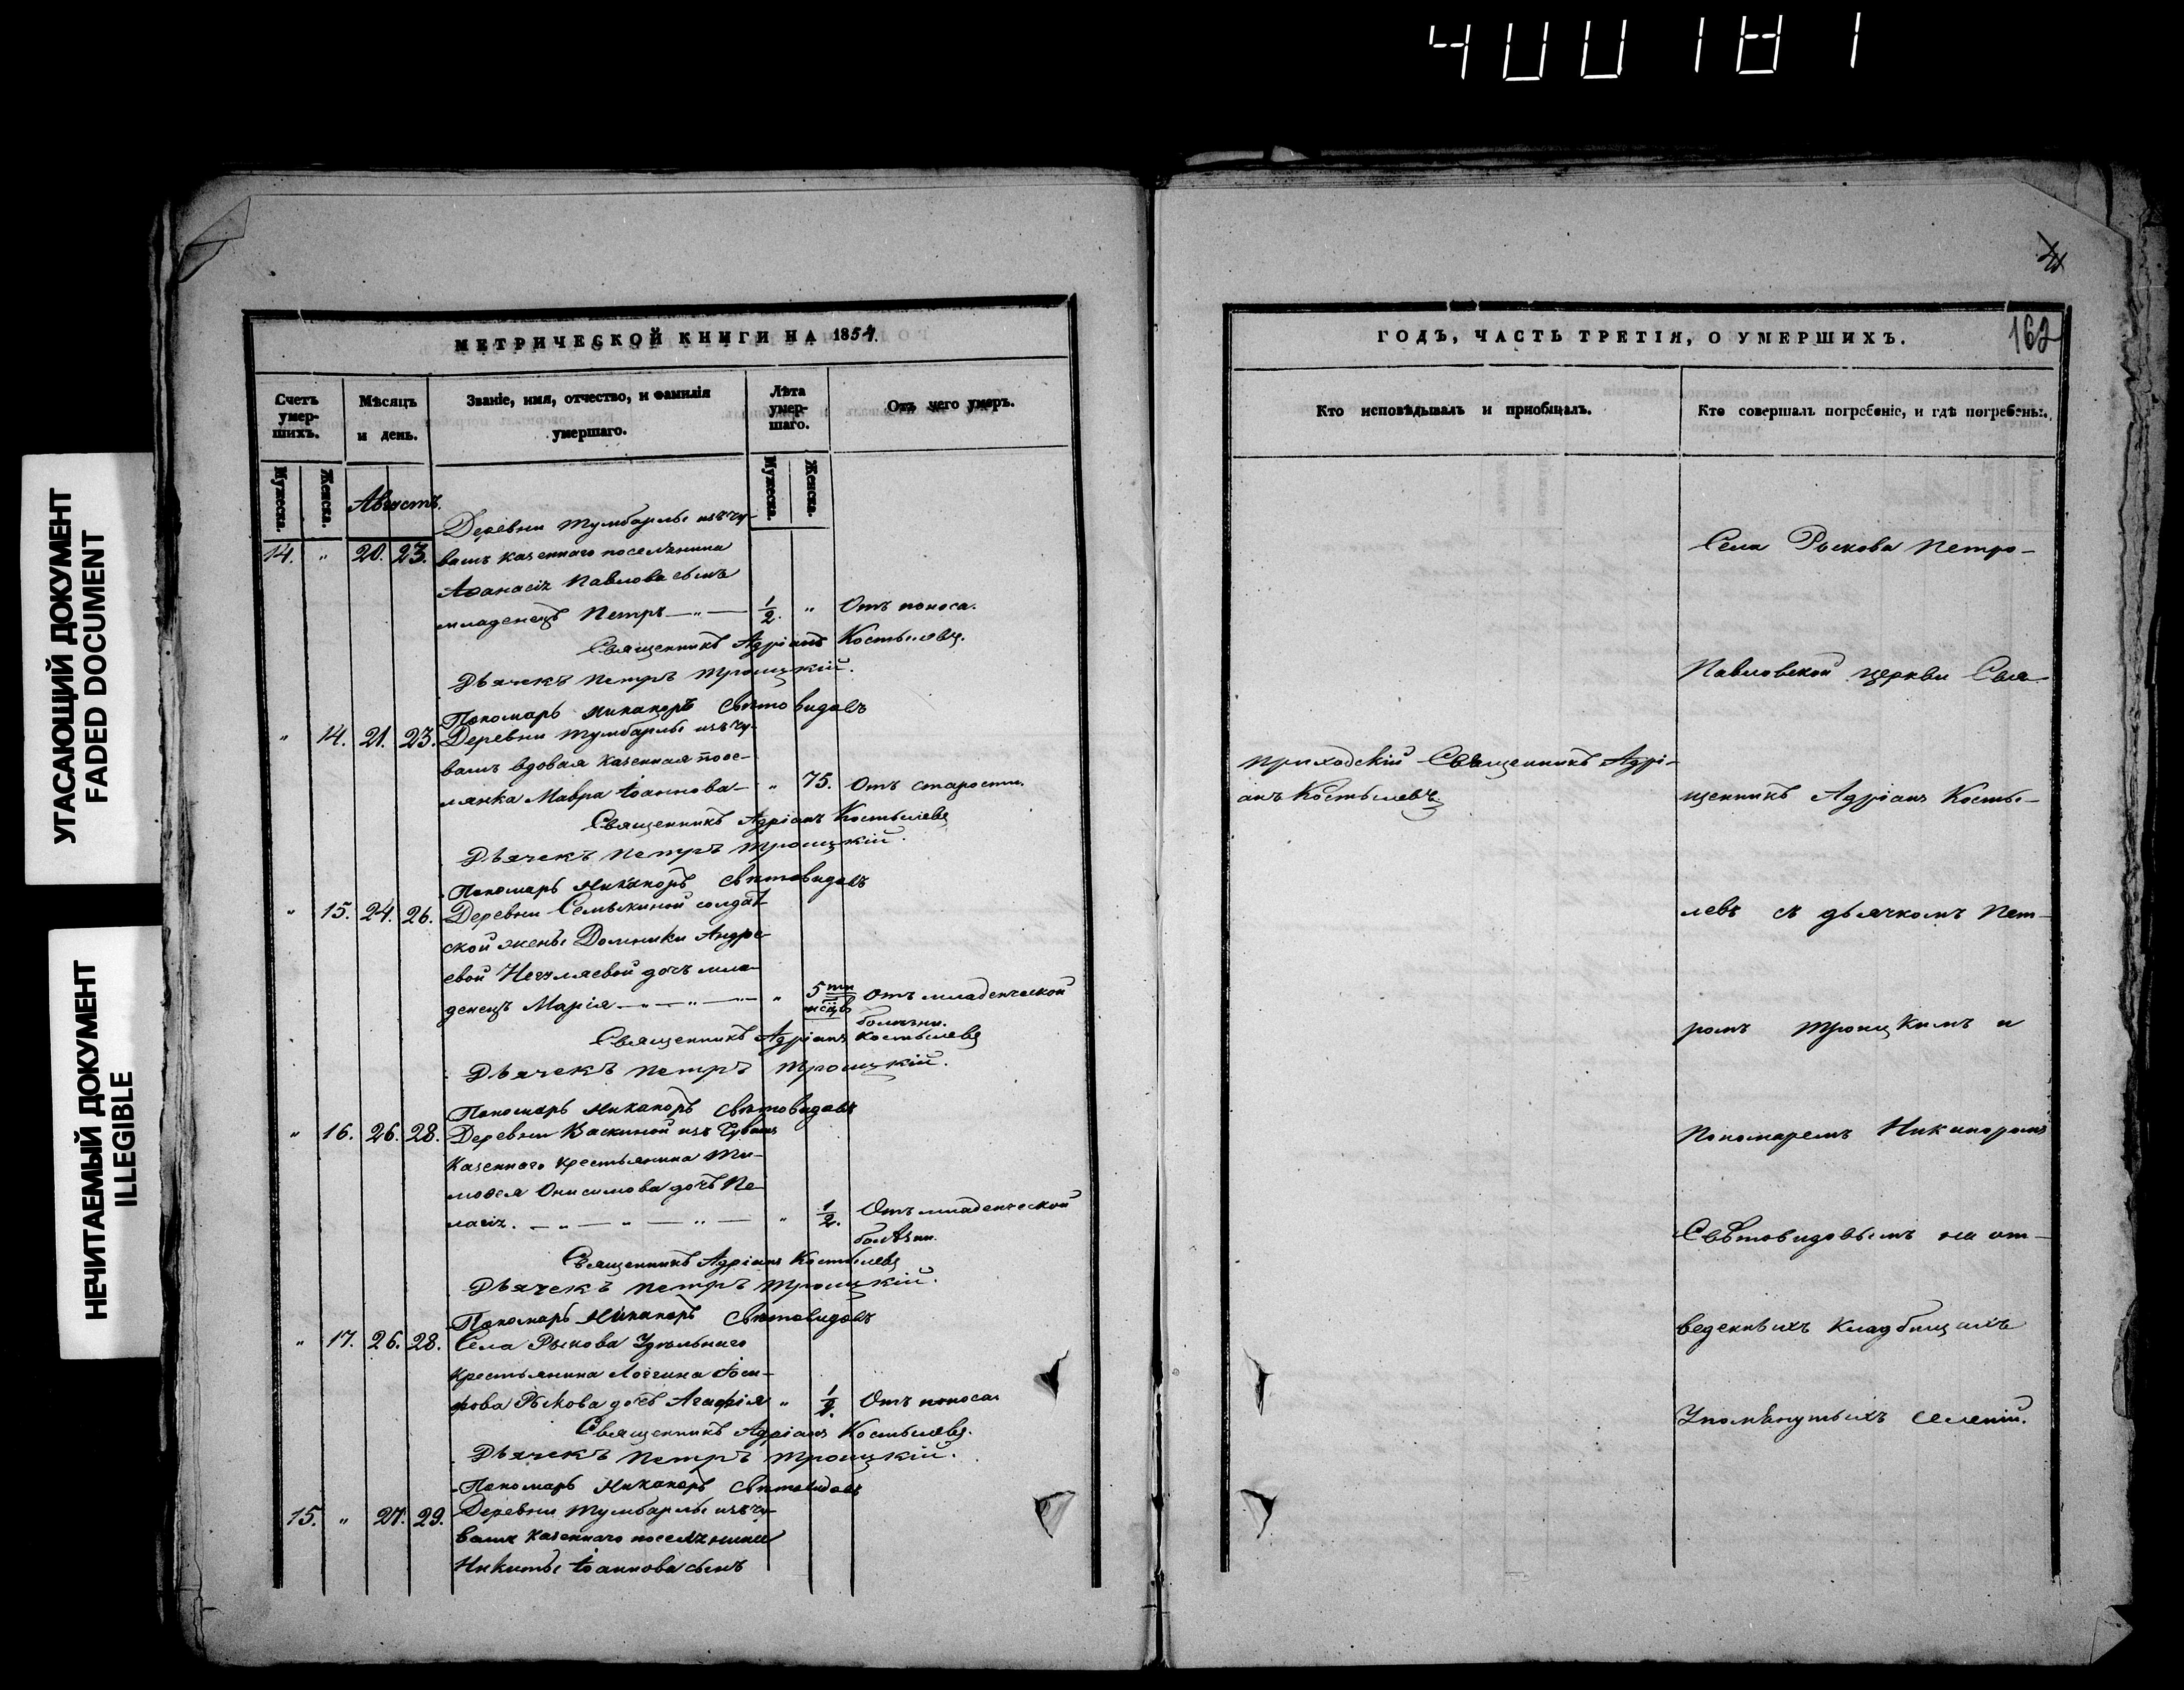 4001811
УГАСАЮЩИЙ ДОКУМЕНТ
FADED DOCUMENT
НЕЧИТАЕМЫЙ ДОКУМЕНТ
ILLEGIBLE
МЕТРИЧЕСКОЙ КНИГИ НА 1854.
Счетъ умер-
шихъ.
Мѣсяцъ
и день.
Званіе, имя, отчество, и фамилія
умершаго.
Лѣта
умер-
шаго.
Отъ чего умеръ.
Мужеска.
Женска.
Мужеска.
Женска.
Августъ.
Деревни Тумбарлы изъ чу-
14. " 20. 23. вашъ казеннаго поселянина
Аѳанасія Павлова сынъ
младенецъ Петръ — " — 1/2. " Отъ поноса.
Священникъ Адріанъ Костылевъ.
Дьячекъ Петръ Троицкій.
Пономарь Никаноръ Свѣтовидовъ
" 14. 21. 23. Деревни Тумбарлы изъ чу-
вашъ вдовая казенная посе-
лянка Мавра Іоаннова — " 75. Отъ старости.
Священникъ Адріанъ Костылевъ
Дьячекъ Петръ Троицкій.
Пономарь Никаноръ Свѣтовидовъ
" 15. 24. 26. Деревни Семыкиной солдат-
ской жены Домники Андре-
евой дочь мла-
денецъ Марія — " — " — " — " 5ти мѣцъ Отъ младенческой
болѣзни.
Священникъ Адріанъ Костылевъ
Дьячекъ Петръ Троицкій.
Пономарь Никаноръ Свѣтовидовъ
" 16. 26. 28. Деревни Васкиной изъ Чувашъ
казеннаго крестьянина Ти-
моѳея Онисимова дочь Пе-
лагія. — " — " — " — " 1/2. Отъ младенческой
болѣзни.
Священникъ Адріанъ Костылевъ
Дьячекъ Петръ Троицкій.
Пономарь Никаноръ Свѣтовидовъ
" 17. 26. 28. Села Рыкова Удѣльнаго
крестьянина Логгина Іоси-
фова Рыкова дочь Агафія " Отъ поноса.
Священникъ Адріанъ Костылевъ.
Дьячекъ Петръ Троицкій.
Пономарь Никаноръ Свѣтовидовъ
15. " 27. 29. Деревни Тумбарлы изъ чу-
вашъ казеннаго поселянина
Никиты Іоаннова сынъ
162
ГОДЪ, ЧАСТЬ ТРЕТІЯ, О УМЕРШИХЪ.
Кто исповѣдывалъ и пріобщалъ.
Кто совершалъ погребеніе, и гдѣ погребены.
Приходскій Священникъ Адрі-
анъ Костылевъ
Села Рыкова Петро-
Павловской церкви Свя-
щенникъ Адріанъ Косты-
левъ съ дьячкомъ Пет-
ромъ Троицкимъ и
Пономаремъ Никаноромъ
Свѣтовидовымъ на от-
веденныхъ кладбищахъ
Упомѣнутыхъ селеній.